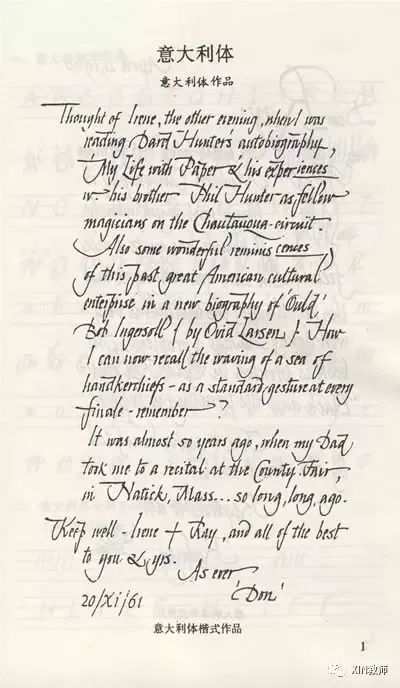 意大利体
意大利体作品
Thought of Irene, the other evening, when I was
reading Dard Hunter's autobiography,
'My Life with Paper' & his experiences
w. his brother Phil Hunter as fellow
magicians on the Chautauqua circuit.
Also some wonderful reminiscences
of this past great American cultural
enterprise in a new biography of 'Ould'
Bob Ingersoll { by Ovid Larsen }. How
I can now recall the waving of a sea of
handkerchiefs - as a standard gesture at every
finale - remember ?
It was almost 50 years ago, when my Dad
took me to a recital at the County Fair,
in Natick, Mass... so long, long, ago.
Keep well - Irene + Ray, and all of the best
to you & yrs.
As ever
'Don'
20/xi/61
意大利体楷式作品
1
XIN教师